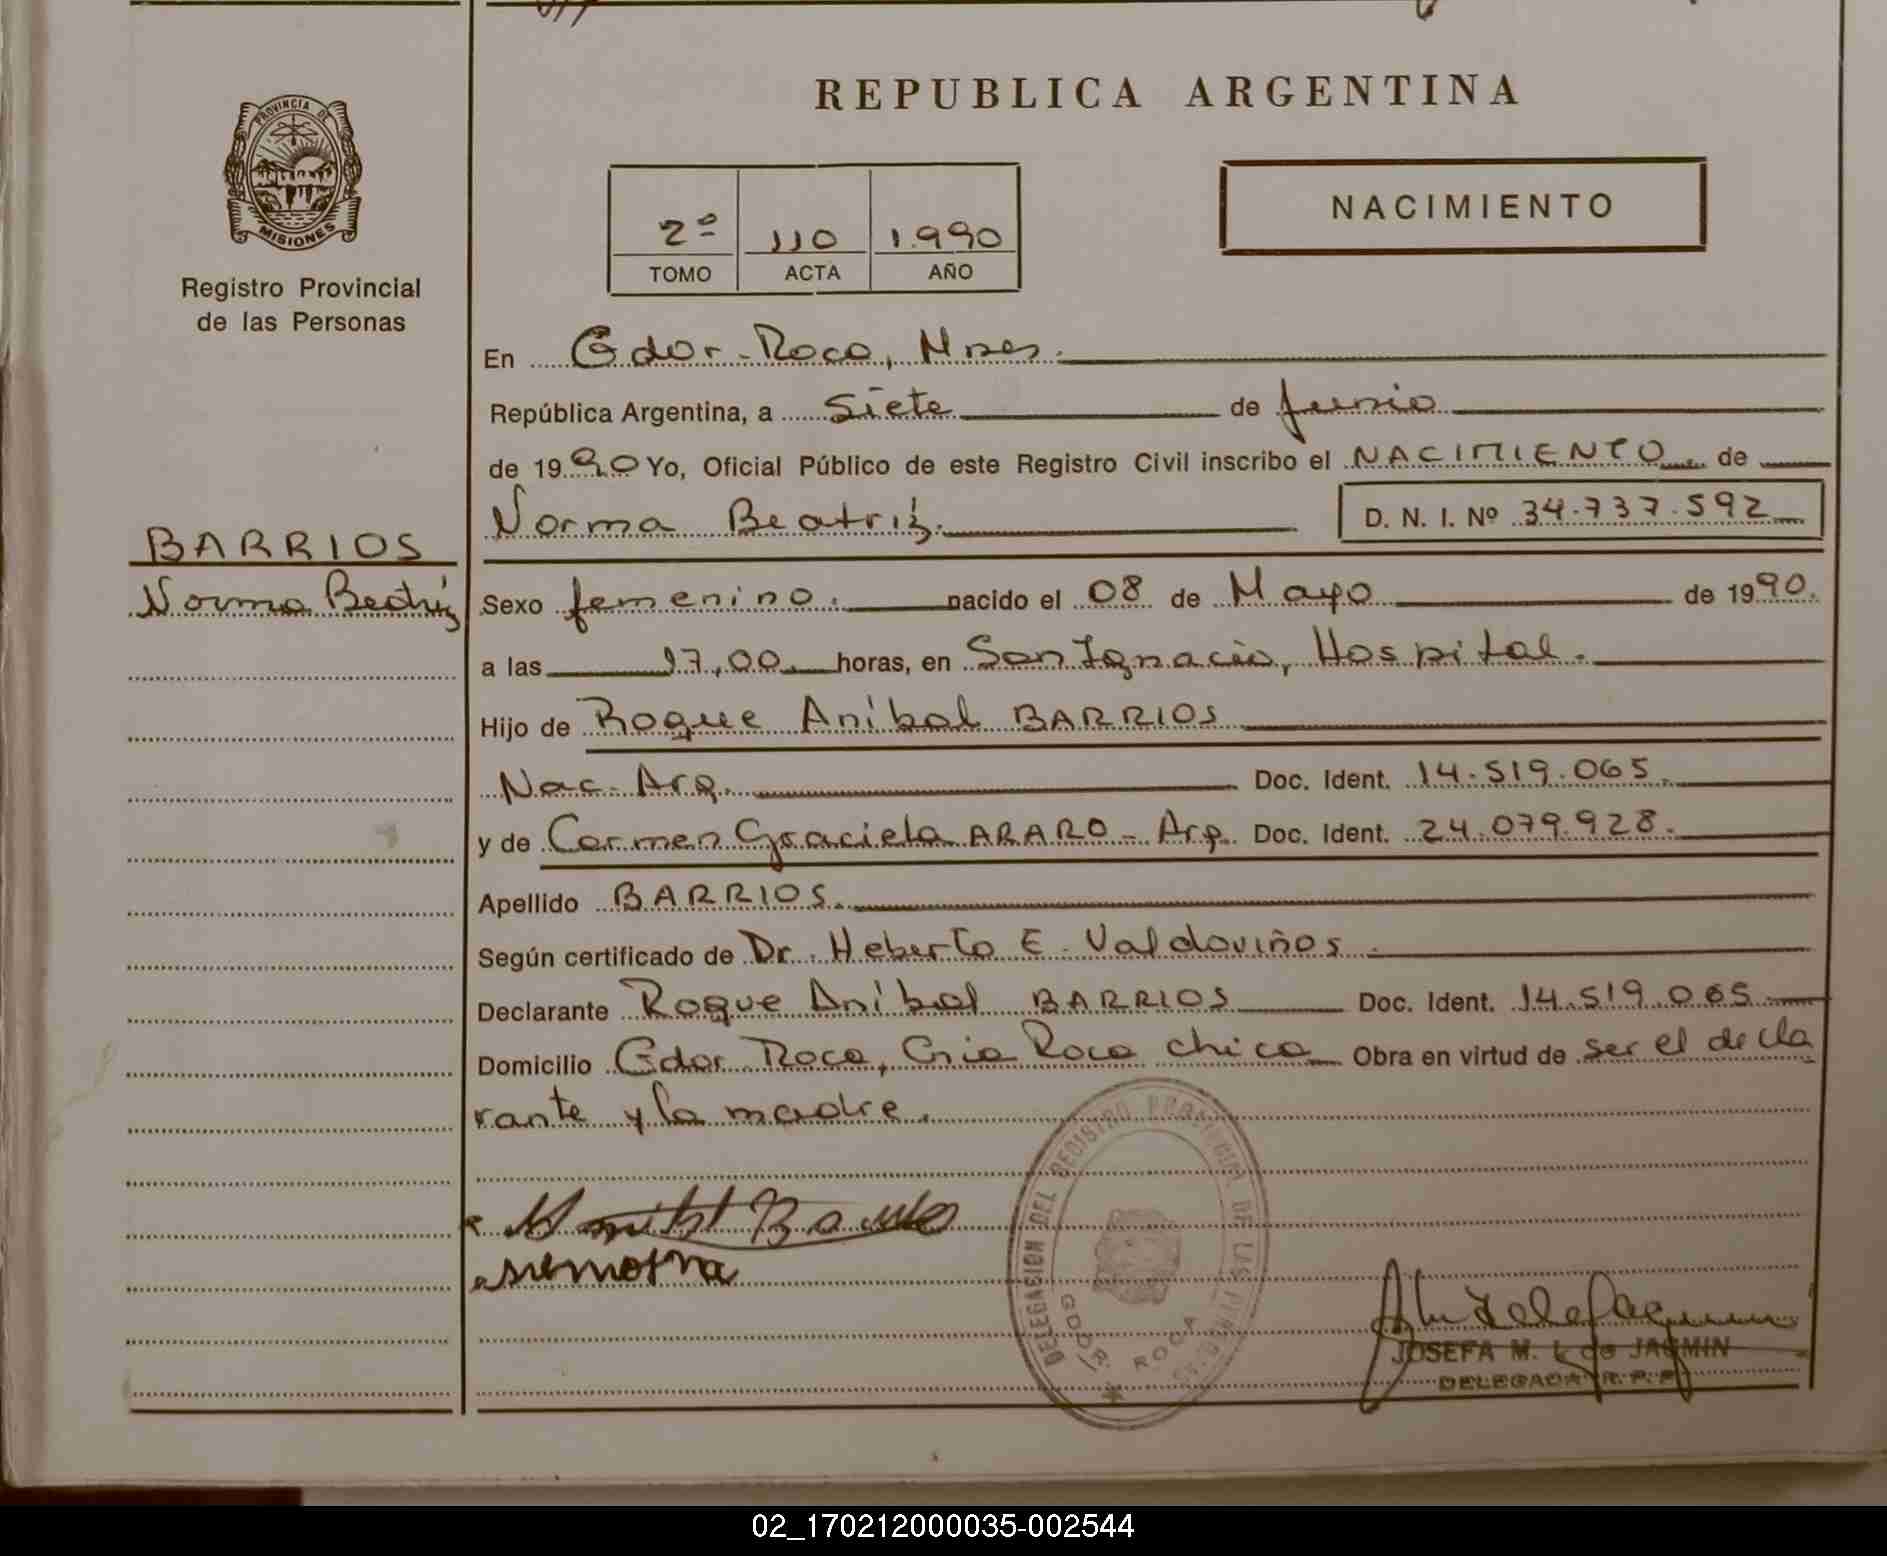 REPUBLICA ARGENTINA
PROVINCIA DE
MISIONES
Registro Provincial
de las Personas
2º 110 1.990
TOMO ACTA AÑO
NACIMIENTO
En Gdor. Roca, Mnes.
República Argentina, a siete de junio
de 1990 Yo, Oficial Público de este Registro Civil inscribo el NACIMIENTO de
Norma Beatriz. D. N. I. Nº 34.737.592
BARRIOS
Norma Beatriz
Sexo femenino. nacido el 08 de Mayo de 1990.
a las 17,00 horas, en San Ignacio, Hospital.
Hijo de Roque Aníbal BARRIOS
Nac. Arg. Doc. Ident. 14.519.065.
y de Carmen Graciela ARARO - Arg. Doc. Ident. 24.079.928.
Apellido BARRIOS.
Según certificado de Dr. Heberto E. Valdoviños.
Declarante Roque Aníbal BARRIOS Doc. Ident. 14.519.065
Domicilio Gdor. Roca, Cnia Roca chica Obra en virtud de ser el decla
rante y la madre.
DELEGACION DEL REGISTRO PROVINCIAL DE LAS PERSONAS
GDOR. ROCA
JOSEFA M. L. de JACMIN
DELEGADA R. P. P.
02_170212000035-002544